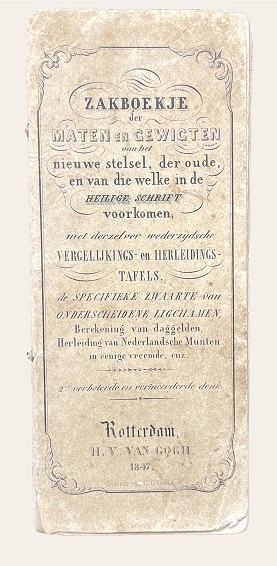 ZAKBOEKJE
der
MATEN EN GEWIGTEN
van het
nieuwe stelsel, der oude,
en van die welke in de
HEILIGE SCHRIFT
voorkomen;
met derzelver wederzijdsche
VERGELIJKINGS- en HERLEIDINGS-
TAFELS,
de SPECIFIEKE ZWAARTE van
ONDERSCHEIDENE LIGCHAMEN,
Berekening van daggelden,
Herleiding van Nederlandsche Munten
in eenige vreemde, enz.
2de verbeterde en vermeerderde druk.
Rotterdam,
H. V. VAN GOGH.
1847.